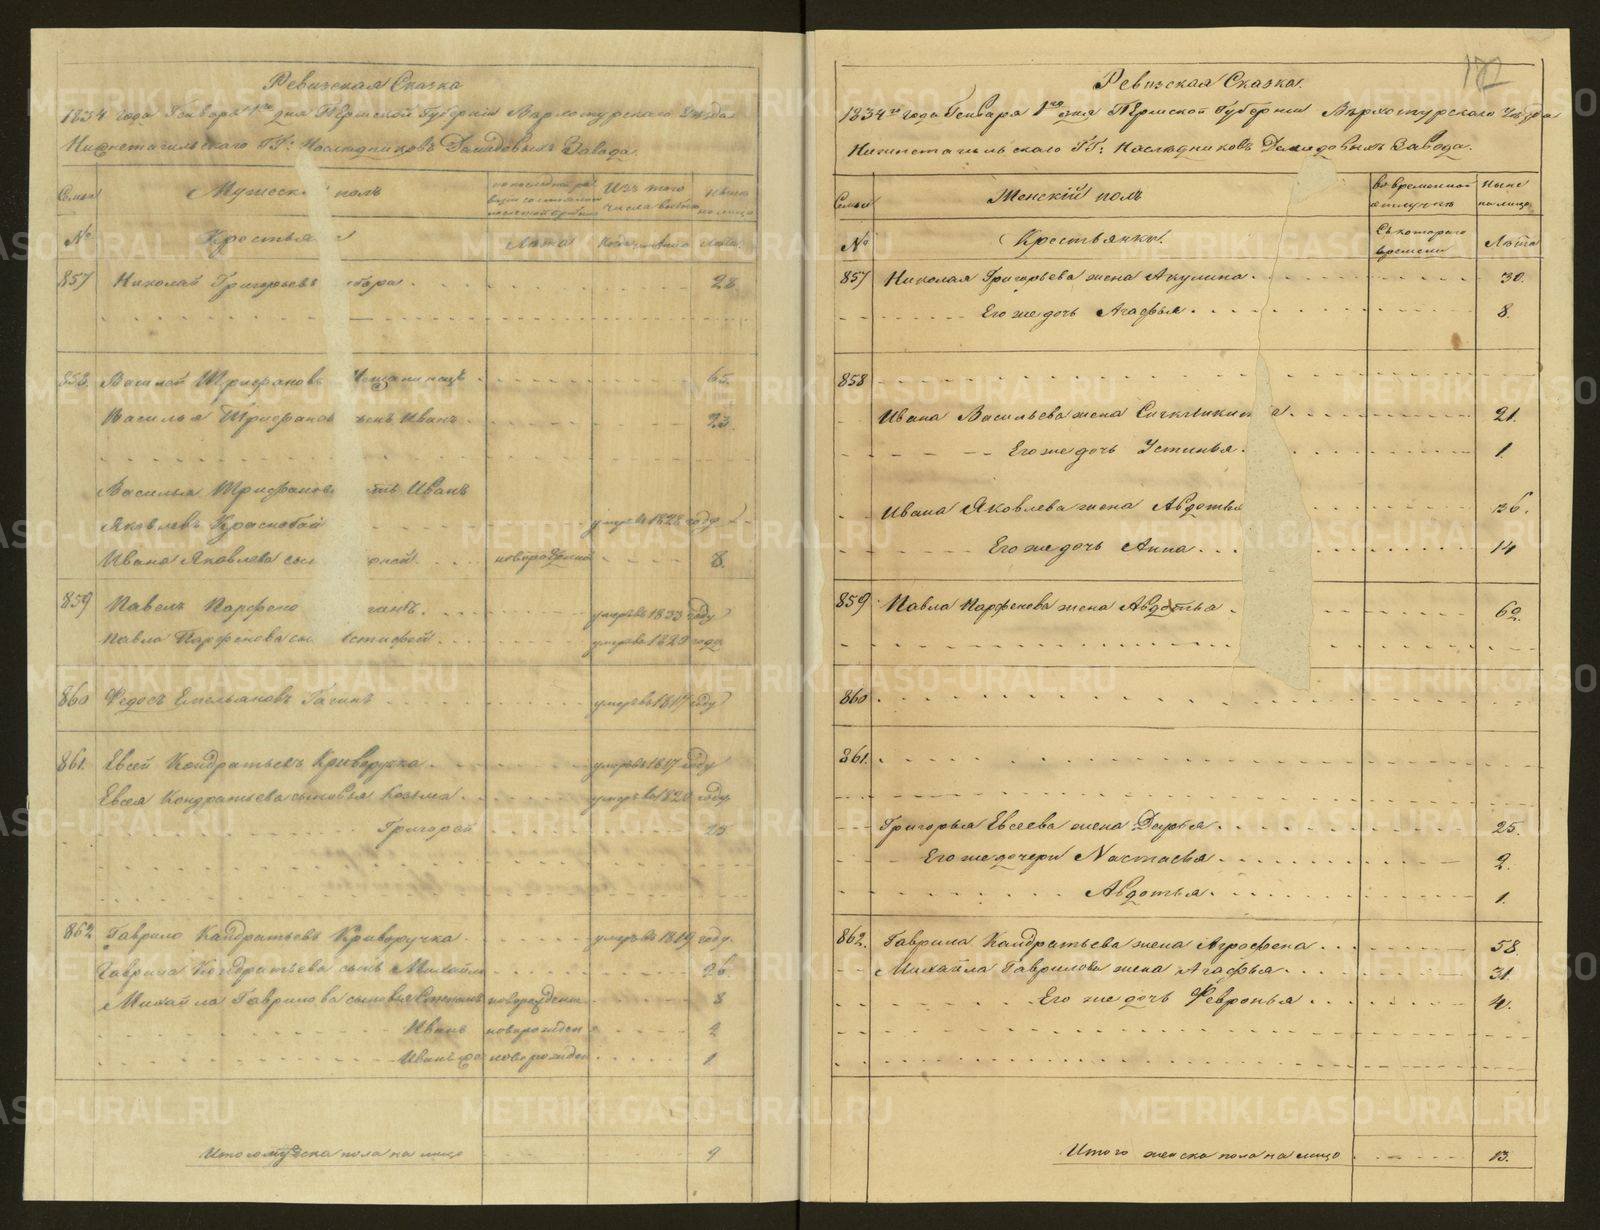 Ревизская Сказка
1834 года Генваря 1го дня Пермской Губернiи Верхотурскаго Уезда
Нижнетагильскаго ГГ: Наследниковъ Демидовыхъ Завода.
Семьи
Мужеск полъ
по последней ре
визiи состояло
Изъ того
числа выбыло
Ныне
на лицо
№
Крестья
Лета
Когда имянно
Лета
857 Николай Григорьевъ 28
858. Василей Трифановъ 65.
Василья Трифанов Иванъ 23.
Василья Трифанов Иванъ
Яковлевъ Краснобай умеръ въ 1828 году
Ивана Яковлева сы новорожденой 8.
859 Павелъ Парфено умеръ въ 1833 году
Павла Парфенова сы умеръ въ 1829 году
860 Федосъ Емельяновъ Гагинъ умеръ въ 1817 году
861. Евсей Кондратьевъ Криворучка умеръ въ 1817 году
Евсея Кондратьева сыновья Козьма умеръ въ 1820 году
Григорей 25
862 Гаврило Кандратьевъ Криворучка умеръ въ 1819 году.
Гаврила Кондратьева сынъ Михайло 26.
Михайла Гаврилова сыновья Степанъ новорожден 8
Иванъ новорожден 2
Иванъ новорожден 1
Итого мужеска пола на лицо 9
172
Ревизская Сказка.
1834го года Генваря 1го дня Пермской Губернiи Верхотурскаго Уезда
Нижнетагильскаго ГГ: Наследниковъ Демидовыхъ Завода.
Семьи
Женскiй полъ
во временной
отлучке
Ныне
на лицо
№
Крестьянки.
Съ котораго
времени
Лета
857 Николая Григорьева жена Акулина 30.
Его же дочь Агафья 8.
858
Ивана Васильева жена 21.
Его же дочь Устинья 1.
Ивана Яковлева жена Авдотья 36.
Его же дочь Анна 14
859 Павла Парфенова жена Авдотья 62.
860
861.
Григорья Евсеева жена Дарья 25.
Его же дочери Настасья 2.
Авдотья 1.
862. Гаврила Кандратьева жена Аграфена 58.
Михайла Гаврилова жена Агафья 31.
Его же дочь Февронья 4.
Итого женска пола на лицо 13.
METRIKI.GASO-URAL.RU